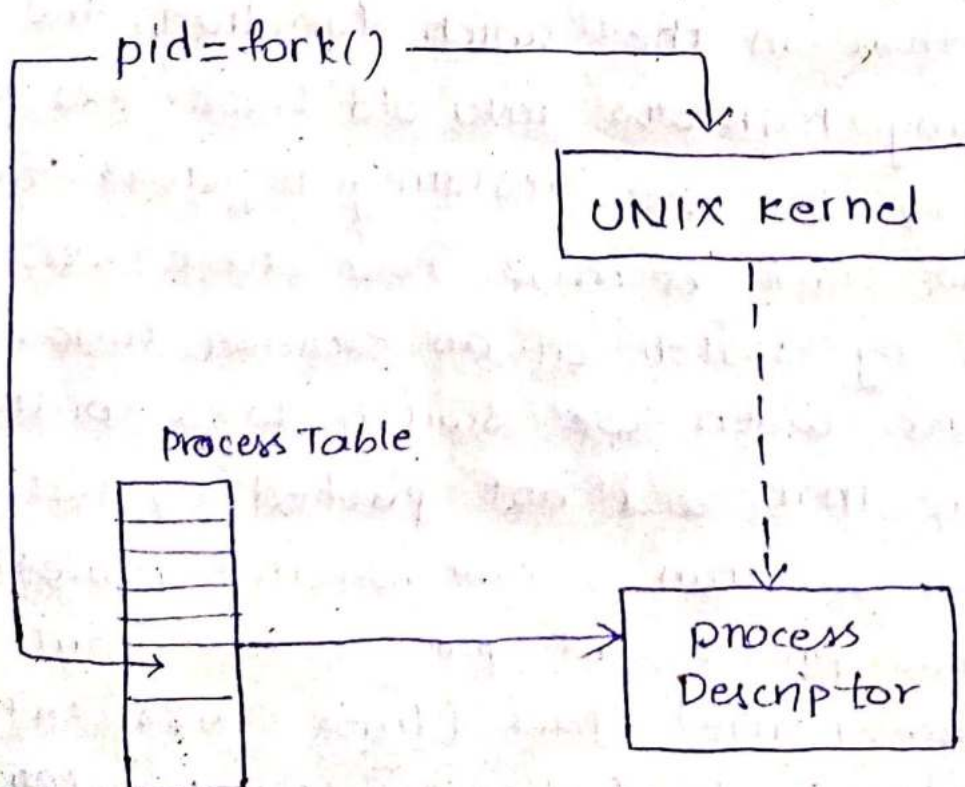 pid=fork()
UNIX Kernel
Process Table
process
Descriptor